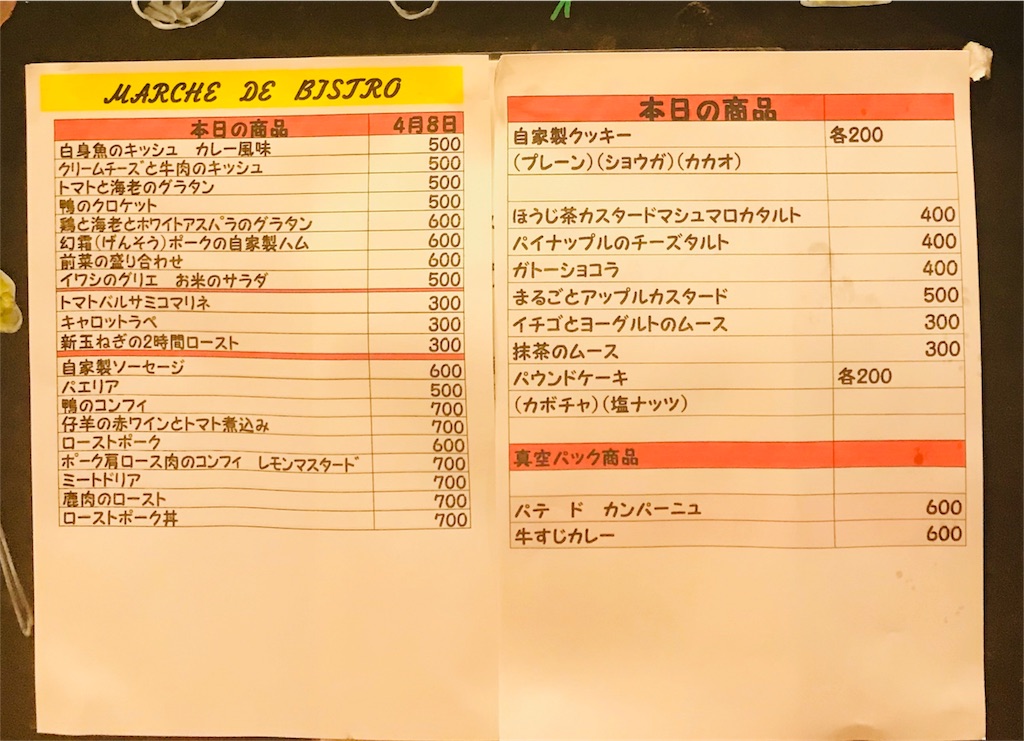 MARCHE DE BISTRO
本日の商品 4月8日
白身魚のキッシュ カレー風味 500
クリームチーズと牛肉のキッシュ 500
トマトと海老のグラタン 500
鴨のクロケット 500
鶏と海老とホワイトアスパラのグラタン 600
幻霜(げんそう)ポークの自家製ハム 600
前菜の盛り合わせ 600
イワシのグリエ お米のサラダ 500
トマトバルサミコマリネ 300
キャロットラペ 300
新玉ねぎの2時間ロースト 300
自家製ソーセージ 600
パエリア 500
鴨のコンフィ 700
仔羊の赤ワインとトマト煮込み 700
ローストポーク 600
ポーク肩ロース肉のコンフィ レモンマスタード 700
ミートドリア 700
鹿肉のロースト 700
ローストポーク丼 700
本日の商品
自家製クッキー 各200
(プレーン)(ショウガ)(カカオ)
ほうじ茶カスタードマシュマロカタルト 400
パイナップルのチーズタルト 400
ガトーショコラ 400
まるごとアップルカスタード 500
イチゴとヨーグルトのムース 300
抹茶のムース 300
パウンドケーキ 各200
(カボチャ)(塩ナッツ)
真空パック商品
パテ ド カンパーニュ 600
牛すじカレー 600